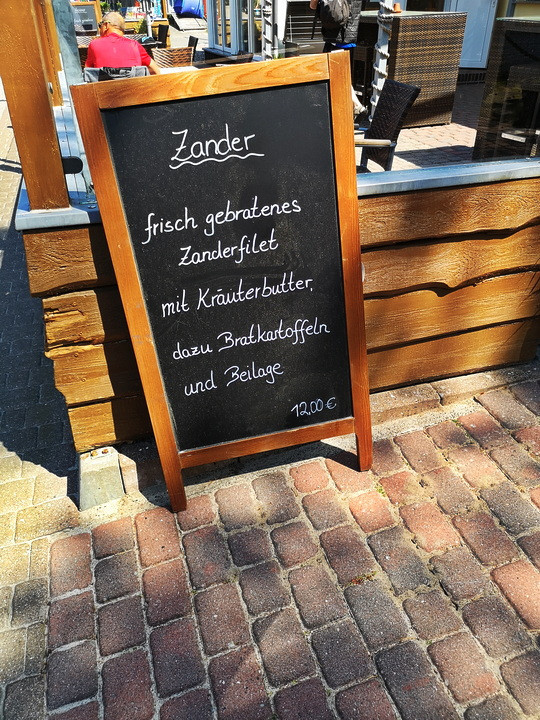 Zander
frisch gebratenes
Zanderfilet
mit Kräuterbutter,
dazu Bratkartoffeln
und Beilage
12,00 €